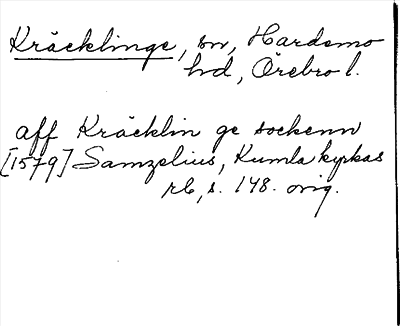 Kräcklinge, sn, Hardemo
hd, Örebro l.
aff Kräcklin ge sockenn
[1579] Samzelius, Kumla kyrkas
rb, s. 148. orig.